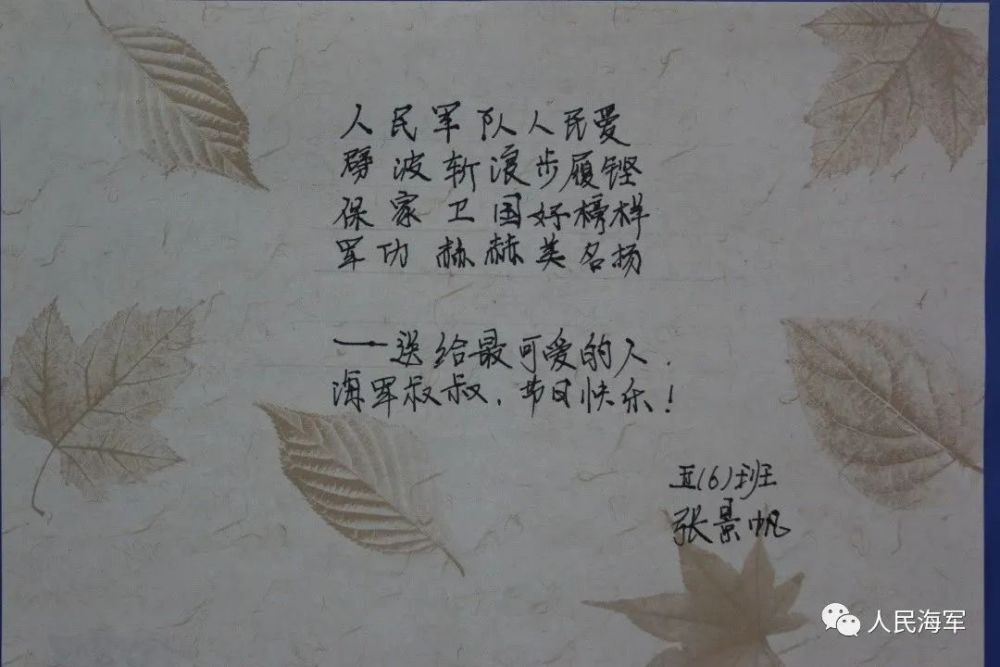 人民军队人民爱
劈波斩浪步履铿
保家卫国好榜样
军功赫赫美名扬
——送给最可爱的人.
海军叔叔,节日快乐!
五(6)班
张景帆
人民海军